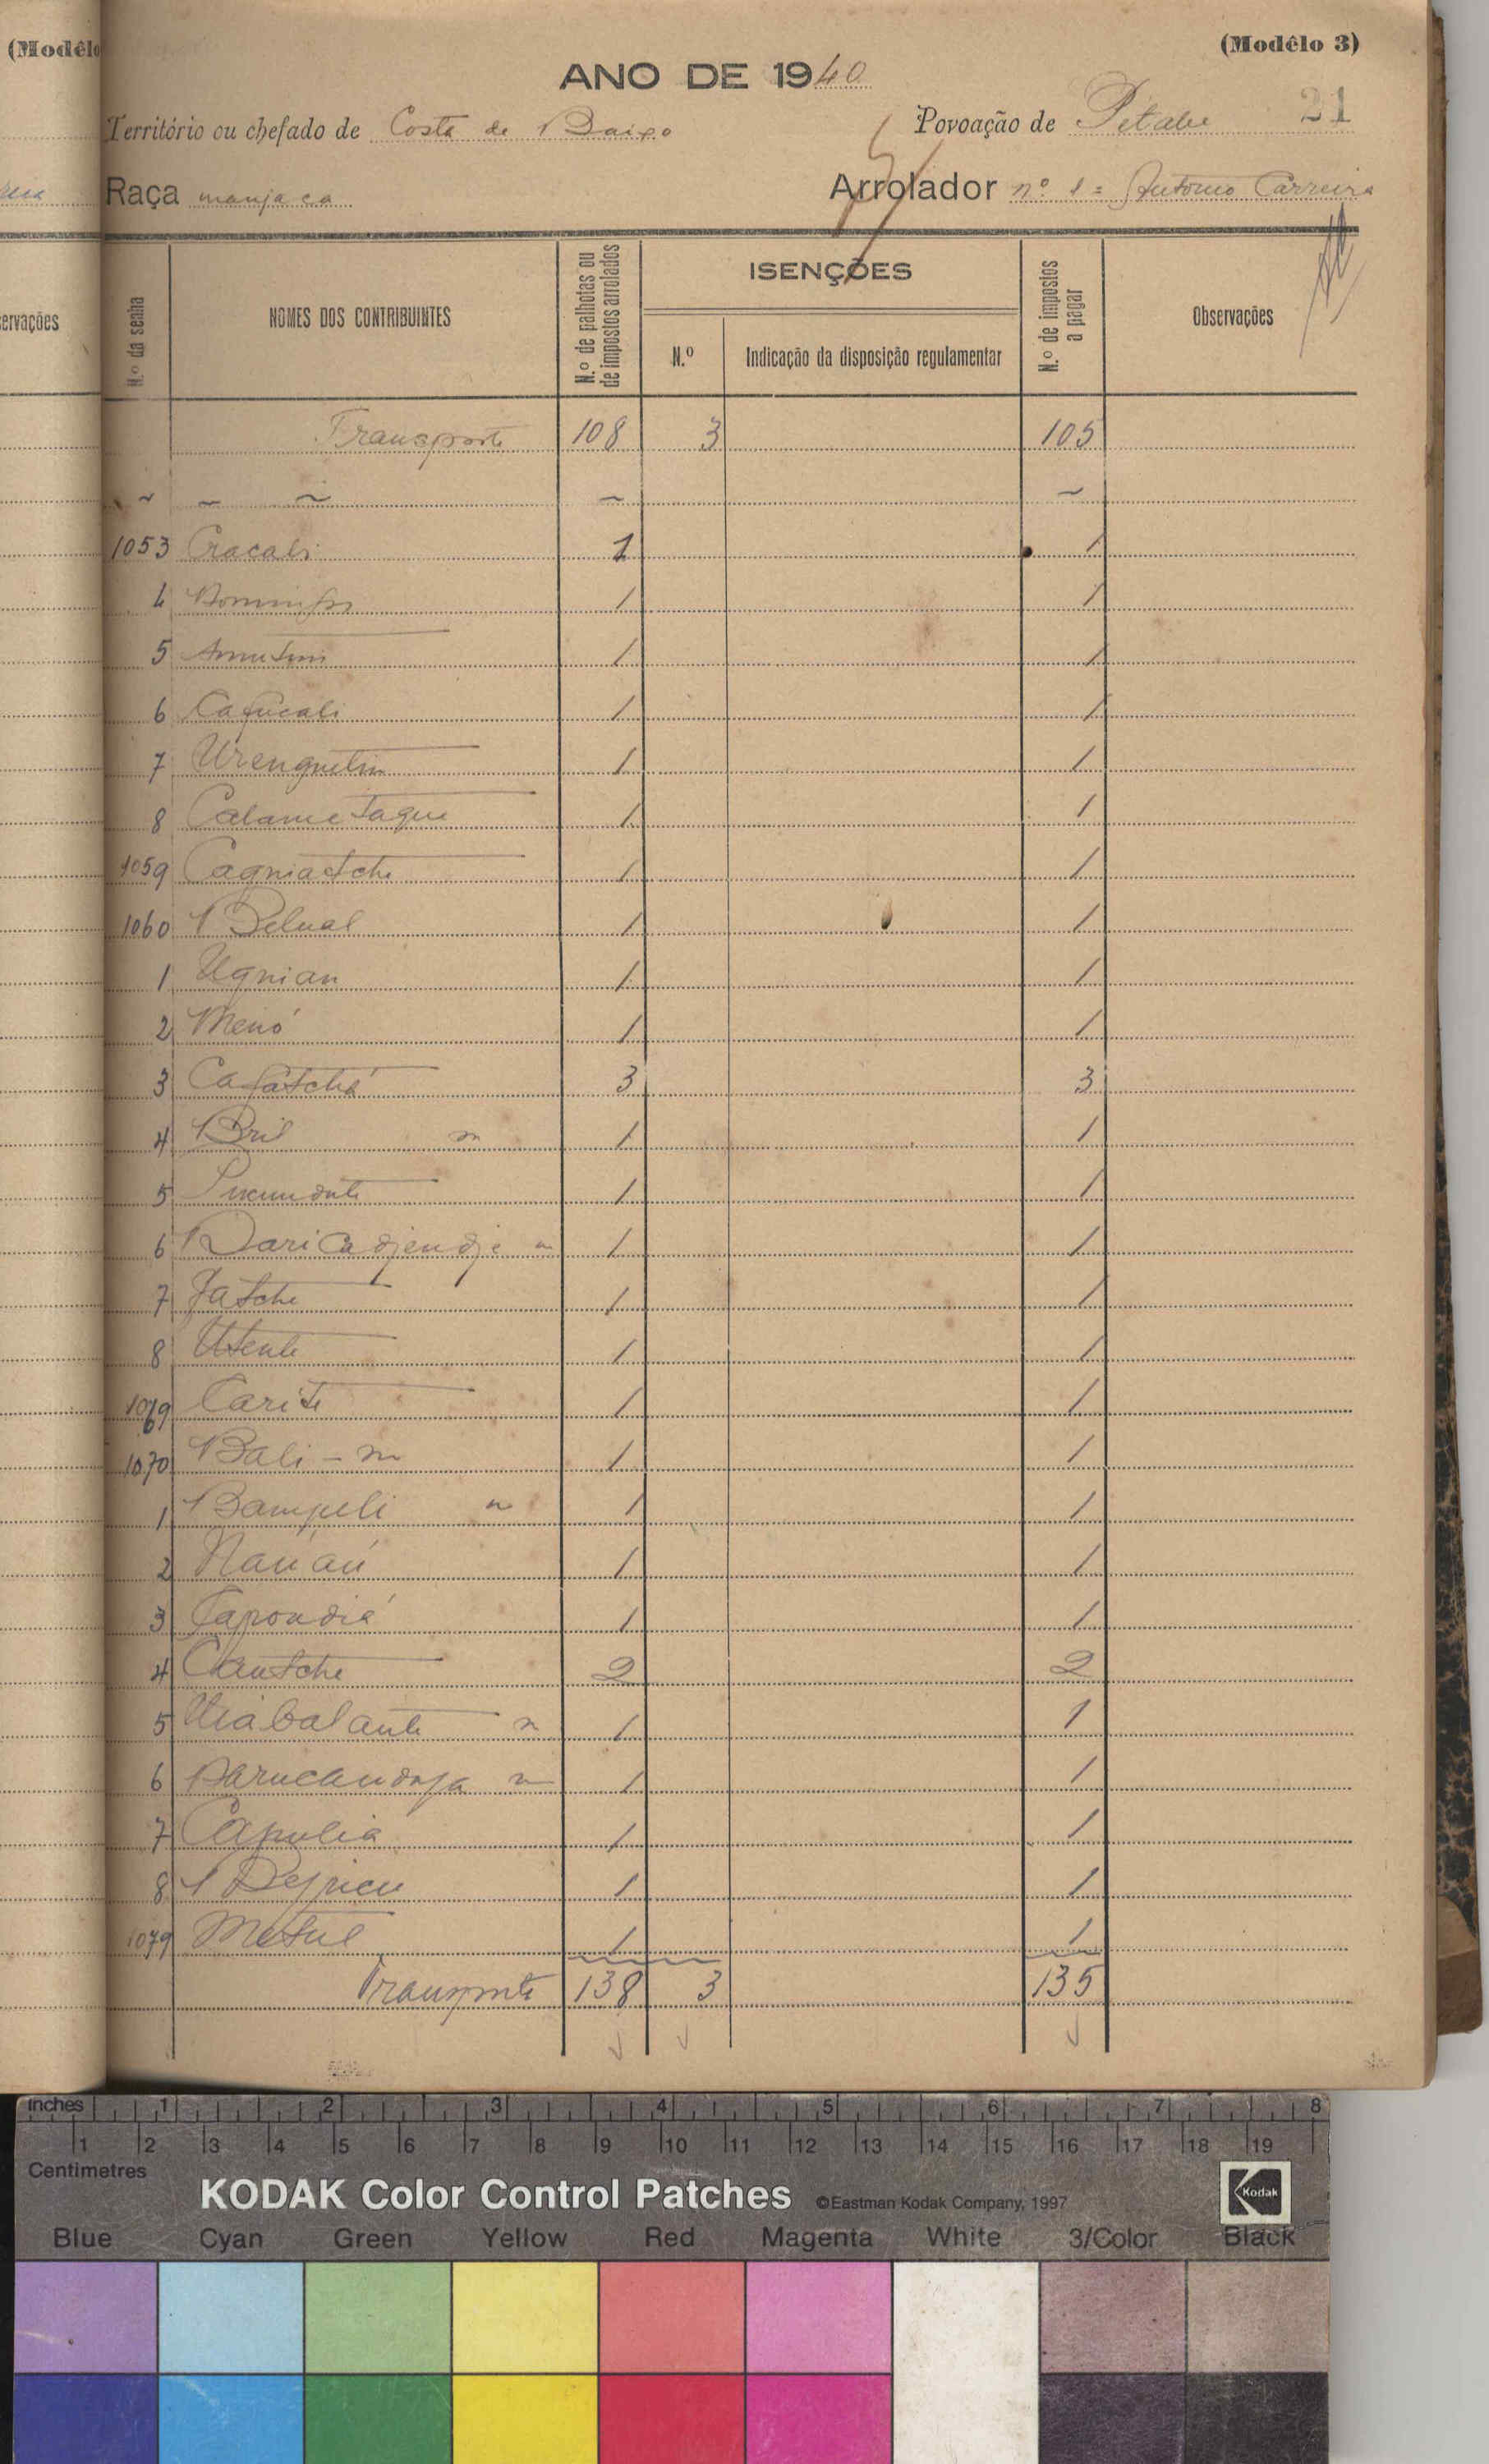 (Modêlo
(Modêlo 3)
ANO DE 1940
Território ou chefado de Costa de Baixo
Povoação de Petabe 21
Raça manjaca
Arrolador nº 1 = António Carreira
ervações
N.º da senha
NOMES DOS CONTRIBUINTES
N.º de palhotas ou de impostos arrolados
ISENÇÕES
N.º
Indicação da disposição regulamentar
N.º de impostos a pagar
Observações
Transporte 108 3 105
~ ~ ~ ~ ~
1053 Cracali 1 1
4 1 1
5 1 1
6 Cafucali 1 1
7 Urenguetim 1 1
8 Calametaque 1 1
1059 Cagniatche 1 1
1060 Belual 1 1
1 Ugnian 1 1
2 Menó 1 1
3 Cafatchá 3 3
4 Bril m 1 1
5 1 1
6 Daricadjendje m 1 1
7 Jatche 1 1
8 Utente 1 1
1069 Carite 1 1
1070 Bali - m 1 1
1 Bampeli m 1 1
2 Nanaú 1 1
3 Capondiá 1 1
4 Cautche 2 2
5 Uiabalante m 1 1
6 m 1 1
7 Capulia 1 1
8 1 1
1079 Metul 1 1
Transporte 138 3 135
inches 1 2 3 4 5 6 7 8
1 2 3 4 5 6 7 8 9 10 11 12 13 14 15 16 17 18 19
Centimetres
KODAK Color Control Patches ©Eastman Kodak Company, 1997 Kodak
Blue Cyan Green Yellow Red Magenta White 3/Color Black